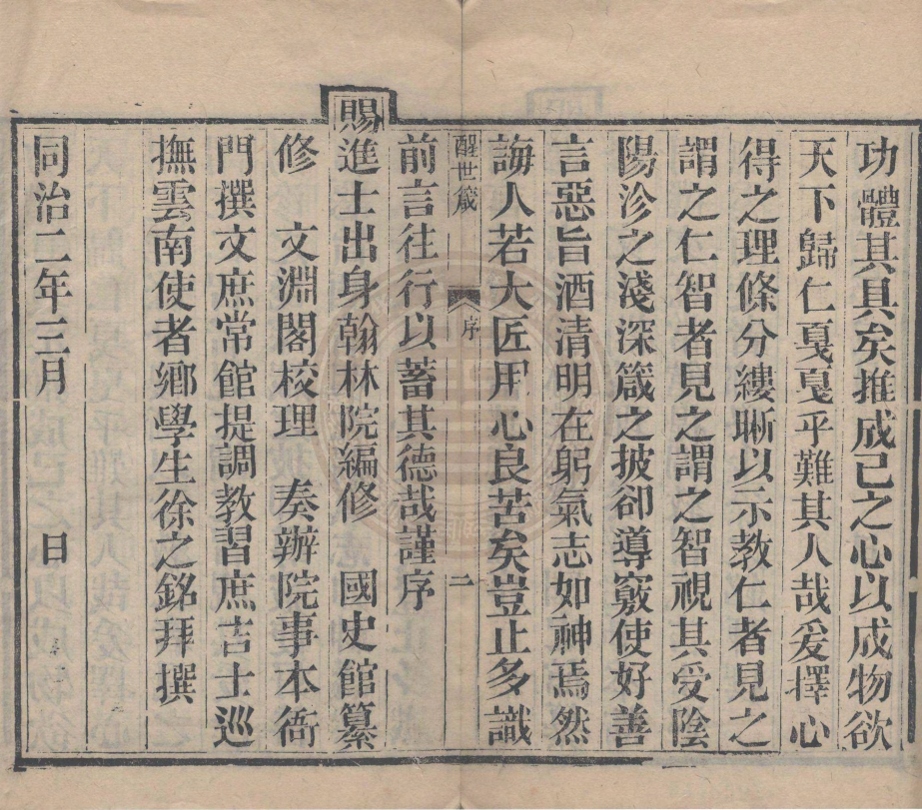 功體其具矣推成己之心以成物欲
天下歸仁戛戛乎難其人哉爰擇心
得之理條分縷晰以示教仁者見之
謂之仁智者見之謂之智視其受陰
陽沴之淺深箴之披卻導窾使好善
言惡旨酒清明在躬氣志如神焉然
誨人若大匠用心良苦矣豈止多識
醒世箴 序 二
前言往行以蓄其德哉謹序
賜進士出身翰林院編修 國史館纂
修 文淵閣校理 奏辦院事本衙
門撰文庶常館提調教習庶吉士巡
撫雲南使者鄉學生徐之銘拜撰
同治二年三月 日